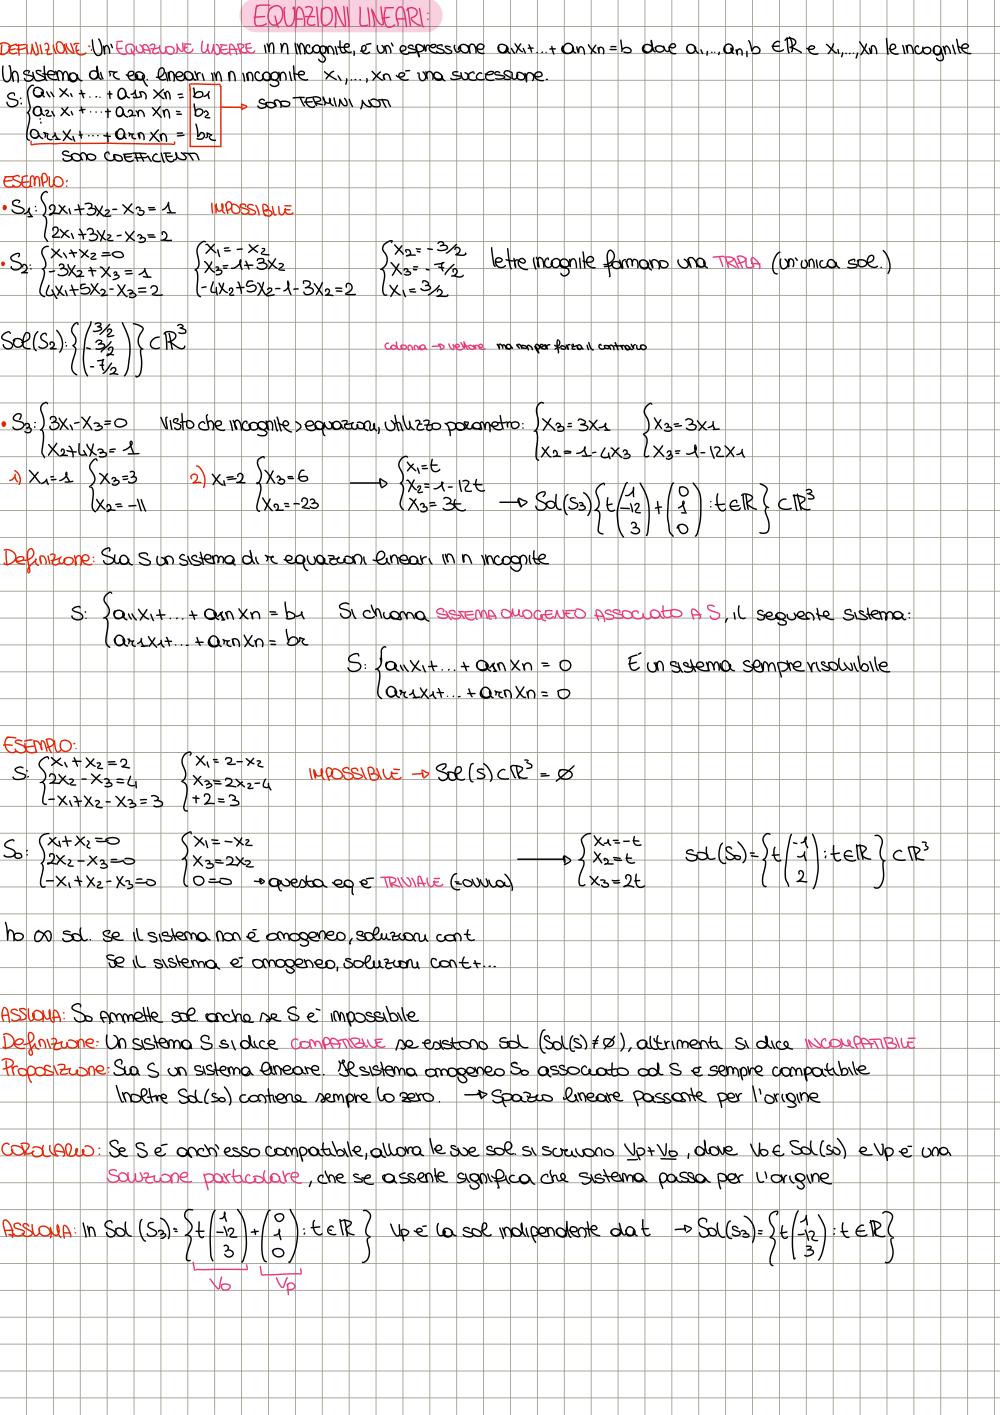 EQUAZIONI LINEARI:
DEFINIZIONE: Un'EQUAZIONE LINEARE in n incognite, è un'espressione a₁x₁+...+anxn=b dove a₁,...,an,b ∈ℝ e x₁,...,xn le incognite
Un sistema di r eq. lineari in n incognite x₁,...,xn è una successione.
S: { a₁₁x₁+...+a₁nxn = b₁ → SONO TERMINI NOTI
a₂₁x₁+...+a₂nxn = b₂
⋮
ar₁x₁+...+arnxn = br
SONO COEFFICIENTI
ESEMPIO:
• S₁: { 2x₁+3x₂-x₃=1 IMPOSSIBILE
2x₁+3x₂-x₃=2
• S₂: { x₁+x₂=0 { x₁=-x₂ { x₂=-3/2
-3x₂+x₃=1 x₃=1+3x₂ x₃=-7/2 le tre incognite formano una TRIPLA (un'unica sol.)
4x₁+5x₂-x₃=2 -4x₂+5x₂-1-3x₂=2 x₁=3/2
Sol(S₂): { (3/2 -3/2 -7/2) } ⊂ ℝ³ colonna → vettore ma non per forza il contrario
• S₃: { 3x₁-x₃=0 Visto che incognite > equazioni, utilizzo parametro: { x₃=3x₁ { x₃=3x₁
x₂+4x₃=1 x₂=1-4x₃ x₃=1-12x₁
1) x₁=1 { x₃=3 2) x₁=2 { x₃=6 → { x₁=t
x₂=-11 x₂=-23 x₂=1-12t
x₃=3t → Sol(S₃) { t (1 -12 3) + (0 1 0) : t∈ℝ } ⊂ ℝ³
Definizione: Sia S un sistema di r equazioni lineari in n incognite
S: { a₁₁x₁+...+a₁nxn = b₁ Si chiama SISTEMA OMOGENEO ASSOCIATO A S, il seguente sistema:
ar₁x₁+...+arnxn = br
S: { a₁₁x₁+...+a₁nxn = 0 È un sistema sempre risolvibile
ar₁x₁+...+arnxn = 0
ESEMPIO:
S: { x₁+x₂=2 { x₁=2-x₂
2x₂-x₃=4 x₃=2x₂-4 IMPOSSIBILE → Sol(S) ⊂ ℝ³ = ∅
-x₁+x₂-x₃=3 +2=3
S₀: { x₁+x₂=0 { x₁=-x₂ → { x₁=-t
2x₂-x₃=0 x₃=2x₂ x₂=t sol(S₀)= { t (-1 1 2) : t∈ℝ } ⊂ ℝ³
-x₁+x₂-x₃=0 0=0 → questa eq è TRIVIALE (=ovvia) x₃=2t
ho ∞ sol. se il sistema non è omogeneo, soluzioni con t
se il sistema è omogeneo, soluzioni con t+...
ASSIOMA: S₀ ammette sol anche se S è impossibile
Definizione: Un sistema S si dice COMPATIBILE se esistono sol (Sol(S)≠∅), altrimenti si dice INCOMPATIBILE
Proposizione: Sia S un sistema lineare. Il sistema omogeneo S₀ associato ad S è sempre compatibile
Inoltre Sol(S₀) contiene sempre lo zero. → Spazio lineare passante per l'origine
COROLLARIO: Se S è anch'esso compatibile, allora le sue sol si scrivono Vp+V₀, dove V₀∈ Sol(S₀) e Vp è una
Soluzione particolare, che se assente significa che sistema passa per l'origine
ASSIOMA: In Sol (S₃)= { t (1 -12 3) + (0 1 0) : t∈ℝ } Vp è la sol indipendente da t → Sol(S₃)= { t (1 -12 3) : t∈ℝ }
V₀ Vp